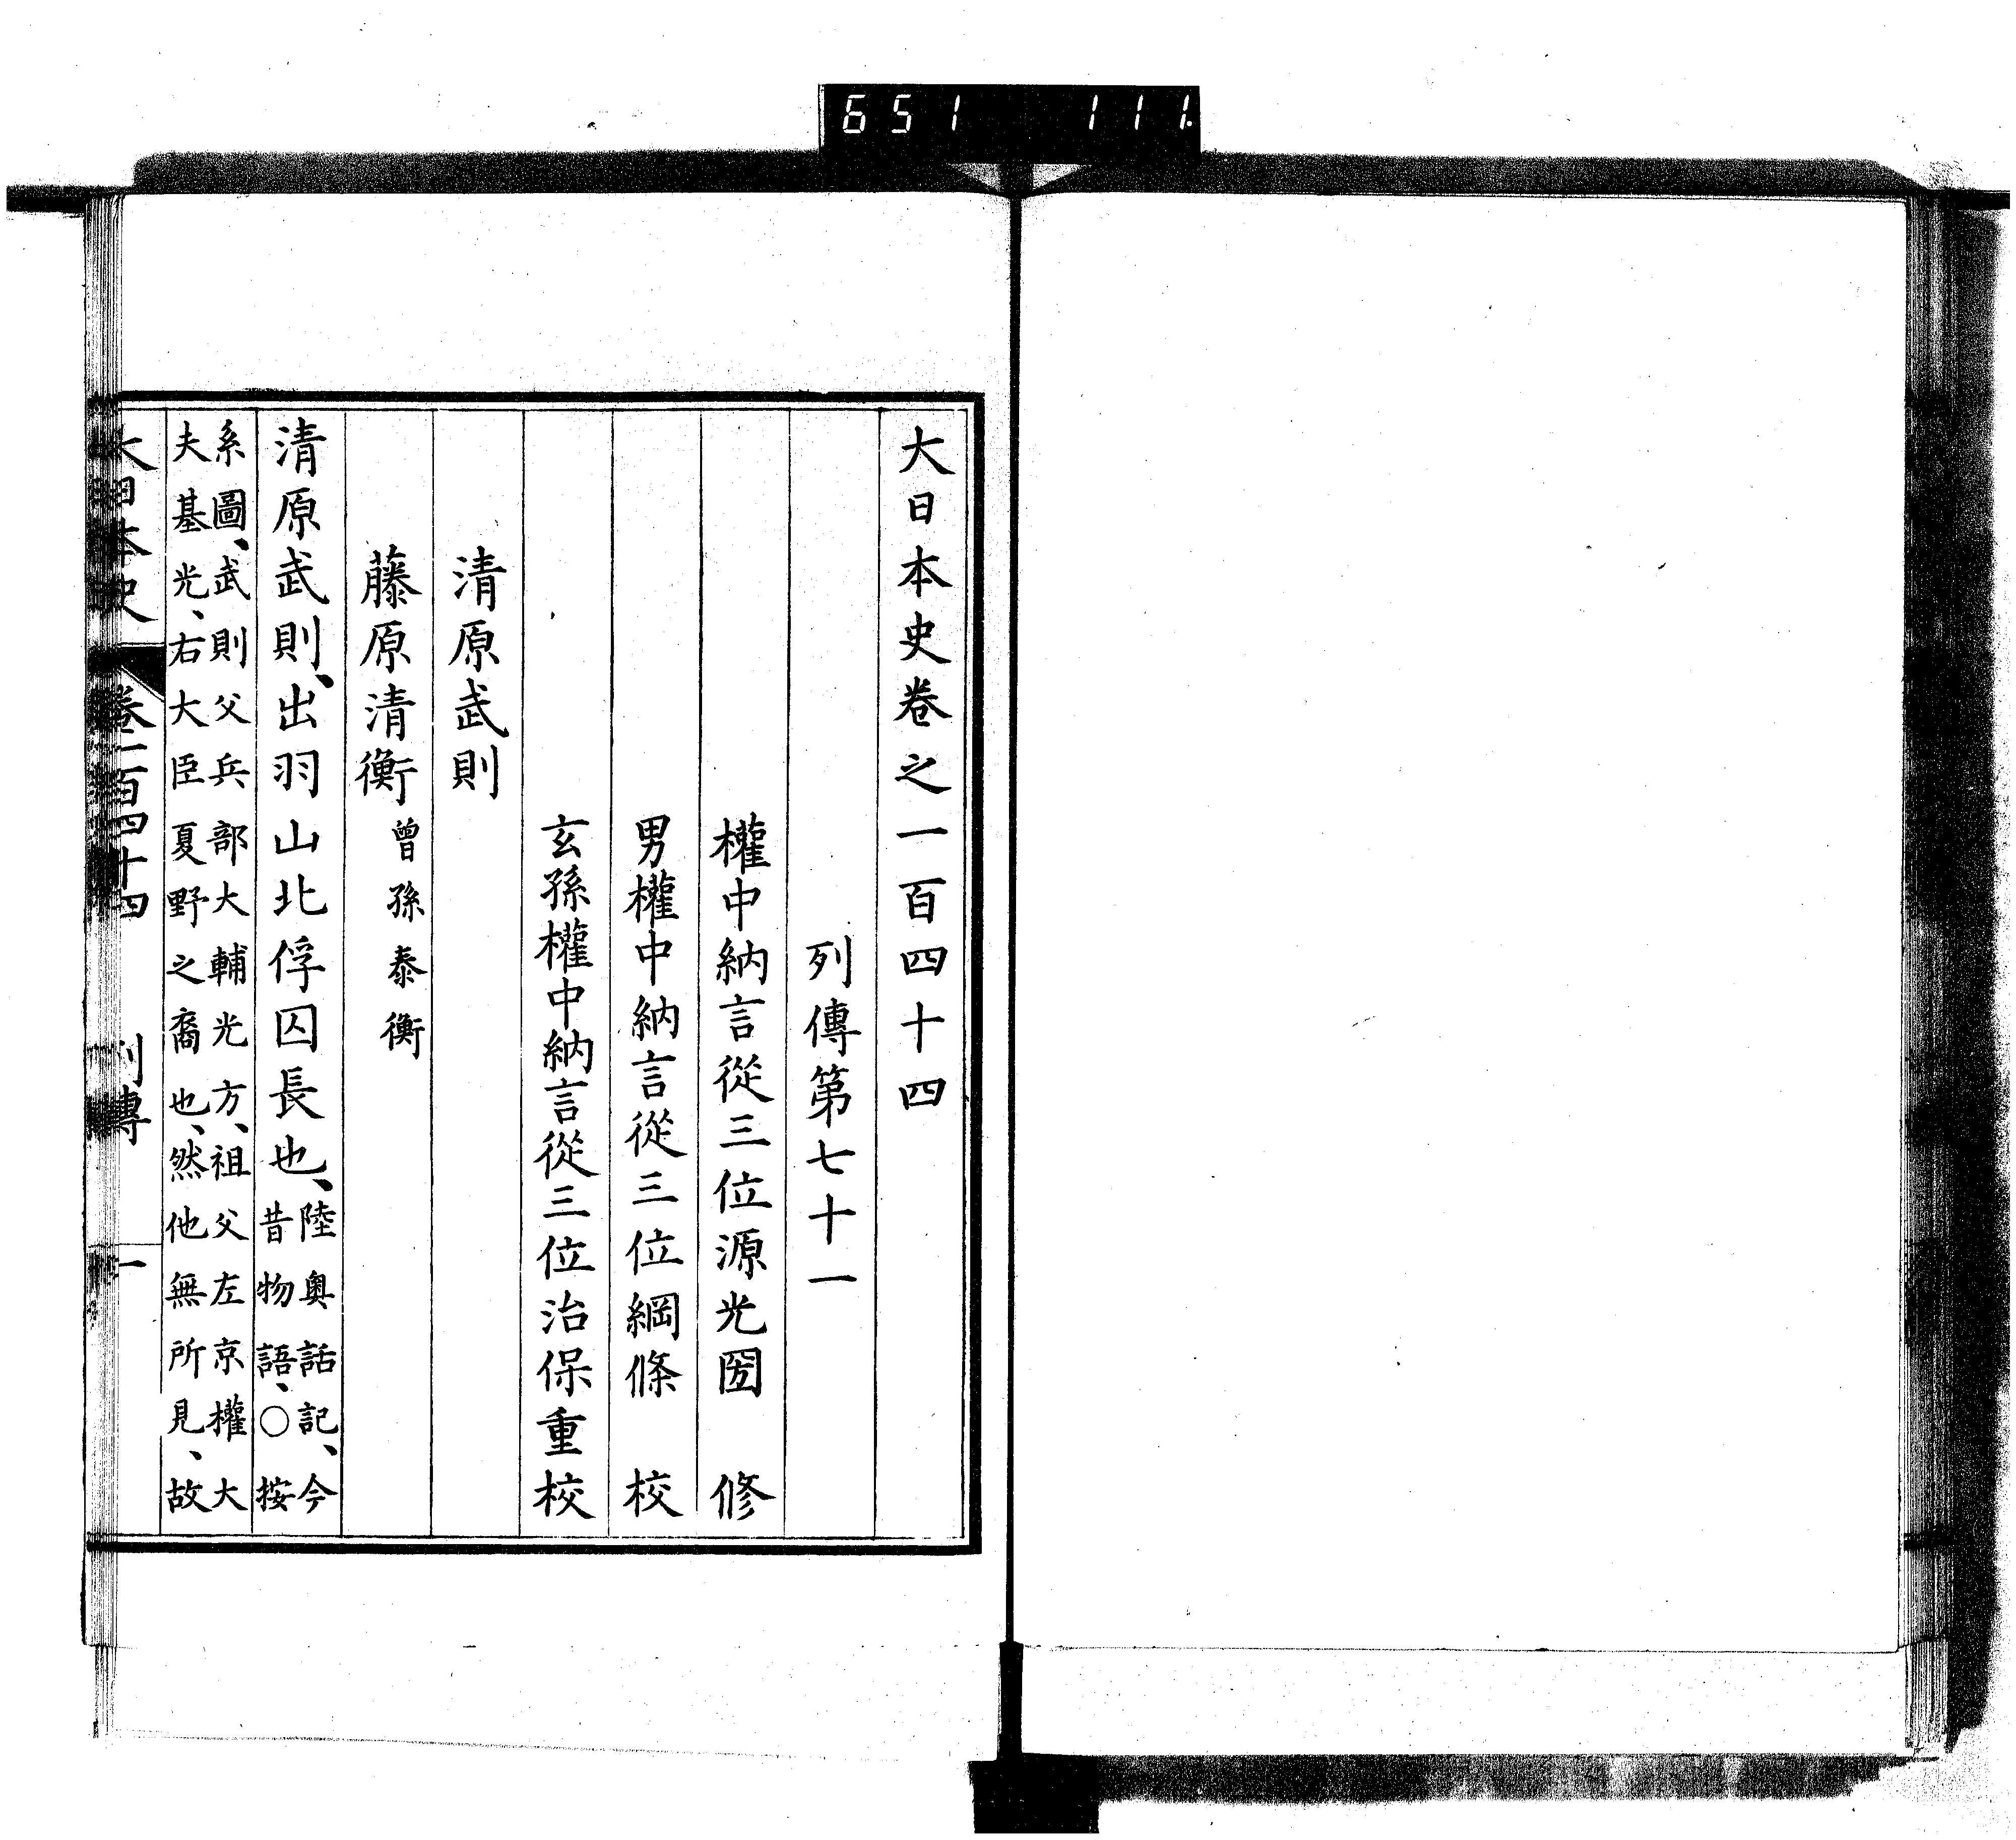 651 111.
大日本史卷之一百四十四
列傳第七十一
權中納言從三位源光圀 修
男權中納言從三位綱條 校
玄孫權中納言從三位治保重校
清原武則
藤原清衡 曾孫泰衡
清原武則、出羽山北俘囚長也、陸奧話記、今
昔物語、○按
系圖、武則父兵部大輔光方、祖父左京權大
夫基光、右大臣夏野之裔也、然他無所見、故
大日本史 卷一百四十四 列傳 一